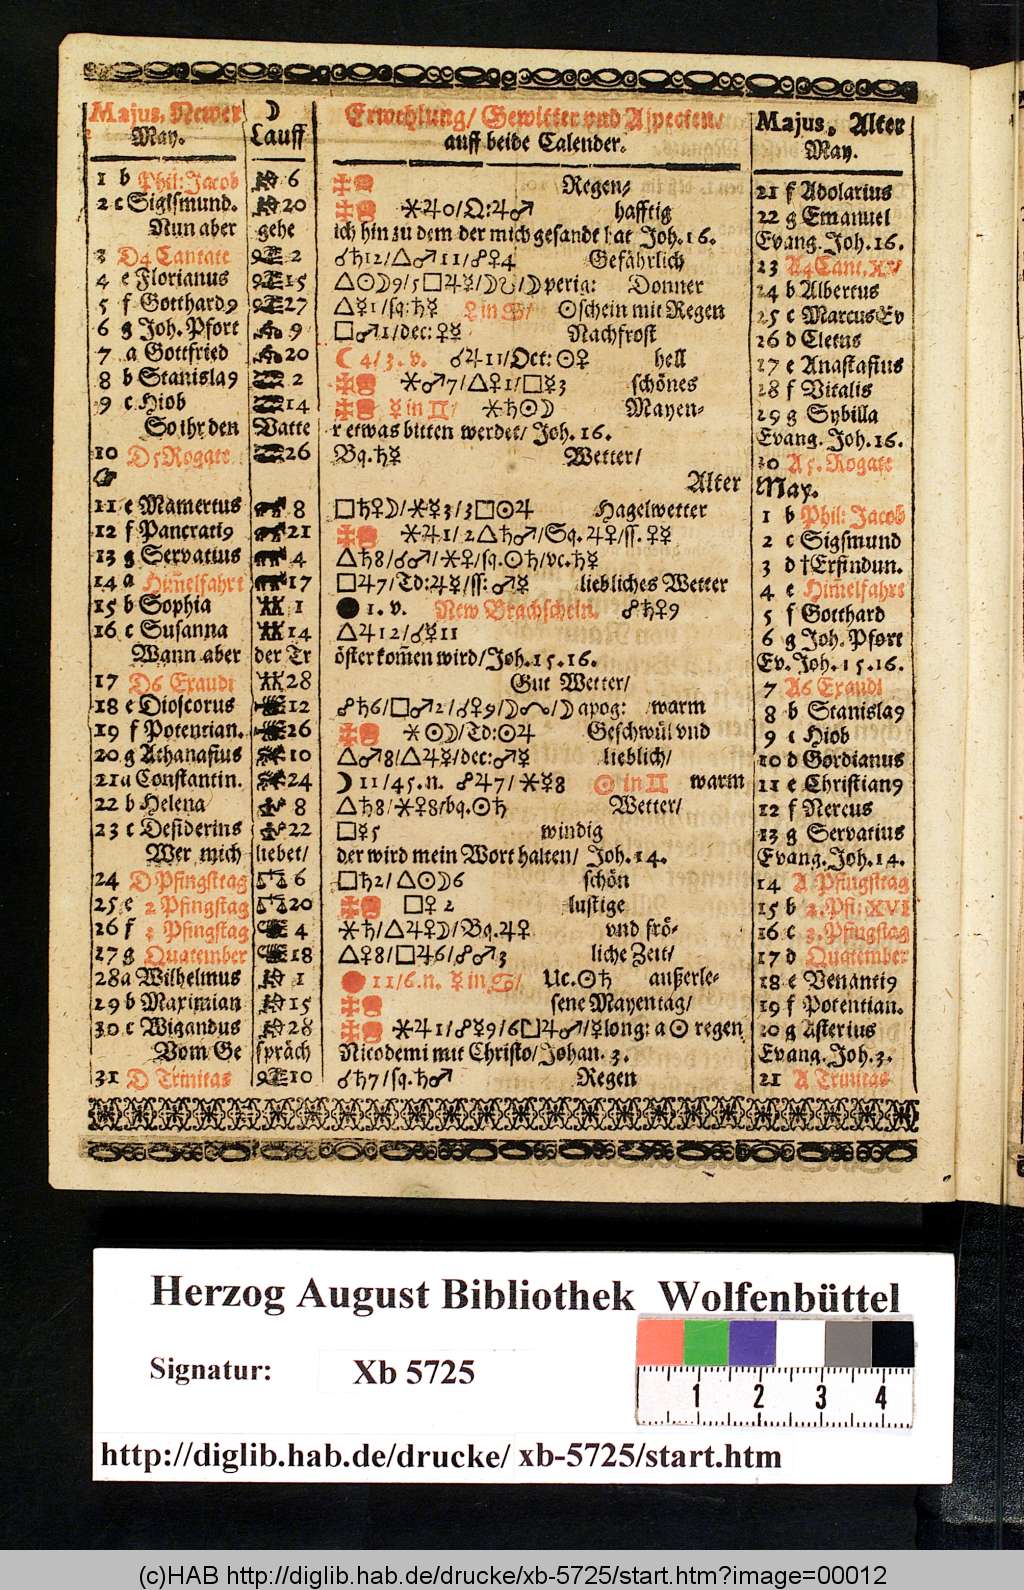 Majus. Newer ☽ Erwehlung/ Gewitter vnd Aspecten/ Majus. Alter
May. Lauff auff beide Calender. May.
1 b Phil: Jacob 6 Regen- 21 f Adolarius
2 c Sigismund. 20 ⚹♃0/Ω:♃♂ hafftig 22 g Emanuel
Nun aber gehe ich hin zu dem der mich gesandt hat Joh. 16. Evang. Joh. 16.
3 D4 Cantate 2 ☌♄12/△♂11/☍♀4 Gefährlich 23 A4 Cant. XV
4 e Florianus 15 △☉☽9/5□♃☿/☽☋/☽perig: Donner 24 b Albertus
5 f Gotthard9 27 △☿1/sq:♄☿ L in ♋/ ☉schein mit Regen 25 c Marcus Ev
6 g Joh. Pfort 9 □♂1/dec:♀☿ Nachfrost 26 d Cletus
7 a Gottfried 20 ☾ 4/3. v. ☌♃11/Oct:☉♀ hell 27 e Anastasius
8 b Stanisla9 2 ⚹♂7/△♀1/□☿3 schönes 28 f Vitalis
9 c Hiob 14 ☿ in ♊/ ⚹♄☉☽ Mayen- 29 g Sybilla
So ihr den Vatter etwas bitten werdet/ Joh. 16. Evang. Joh. 16.
10 D5 Rogate 26 Bq.♄☿ Wetter/ 30 A 5. Rogate
☞ Alter May.
11 e Mamertus 8 □♄♀☽/⚹☿3/3□☉♃ Hagelwetter 1 b Phil: Jacob
12 f Pancrati9 21 ⚹♃1/2△♄♂/Sq.♃♀/ss.♀☿ 2 c Sigsmund
13 g Servatius 4 △♄8/☌♂/⚹♀/sq.☉♄/vc.♄☿ 3 d †Erfindun.
14 a Him̃elfahrt 17 □♃7/Td:♃☿/ss:♂☿ liebliches Wetter 4 e Him̃elfahrt
15 b Sophia 1 ● 1. v. New Brachschein. ☍♄♀9 5 f Gotthard
16 c Susanna 14 △♃12/☌☿11 6 g Joh. Pfort
Wann aber der Tröster kom̃en wird/ Joh. 15. 16. Ev. Joh. 15. 16.
17 D6 Exaudi 28 Gut Wetter/ 7 A6 Exaudi
18 e Dioscorus 12 ☍♄6/□♂2/☌♀9/☽☊/☽apog: warm 8 b Stanisla9
19 f Potentian. 26 ⚹☉☽/Td:☉♃ Geschwül vnd 9 c Hiob
20 g Athanasius 10 △♂8/△♃☿/dec:♂☿ lieblich/ 10 d Gordianus
21 a Constantin. 24 ☽ 11/45. n. ☍♃7/⚹☿8 ☉ in ♊ warm 11 e Christian9
22 b Helena 8 △♄8/⚹♀8/bq.☉♄ Wetter/ 12 f Nereus
23 c Desiderius 22 □☿5 windig 13 g Servatius
Wer mich liebet/ der wird mein Wort halten/ Joh. 14. Evang. Joh. 14.
24 D Pfingsttag 6 □♄2/△☉☽6 schön 14 A Pfingsttag
25 e 2 Pfingstag 20 □♀2 lustige 15 b 2. Pfi: XVI
26 f 3 Pfingstag 4 ⚹♄/△♃♀☽/Bq.♃♀ vnd frö- 16 c 3. Pfingstag
27 g Quatember 18 △♀8/□♃6/☍♂3 liche Zeit/ 17 d Quatember
28 a Wilhelmus 1 ● 11/6. n. ☿ in ♋/ Uc.☉♄ außerle- 18 e Venanti9
29 b Maximian 15 sene Mayentag/ 19 f Potentian.
30 c Wigandus 28 ⚹♃1/☍☿9/6□♃♂/☿long: a ☉ regen 20 g Asterius
Vom Gespräch Nicodemi mit Christo/ Johan. 3. Evang. Joh. 3.
31 D Trinitas 10 ☌♄7/sq.♄♂ Regen 21 A Trinitas
Herzog August Bibliothek Wolfenbüttel
Signatur: Xb 5725
1 2 3 4
http://diglib.hab.de/drucke/ xb-5725/start.htm
(c)HAB http://diglib.hab.de/drucke/xb-5725/start.htm?image=00012